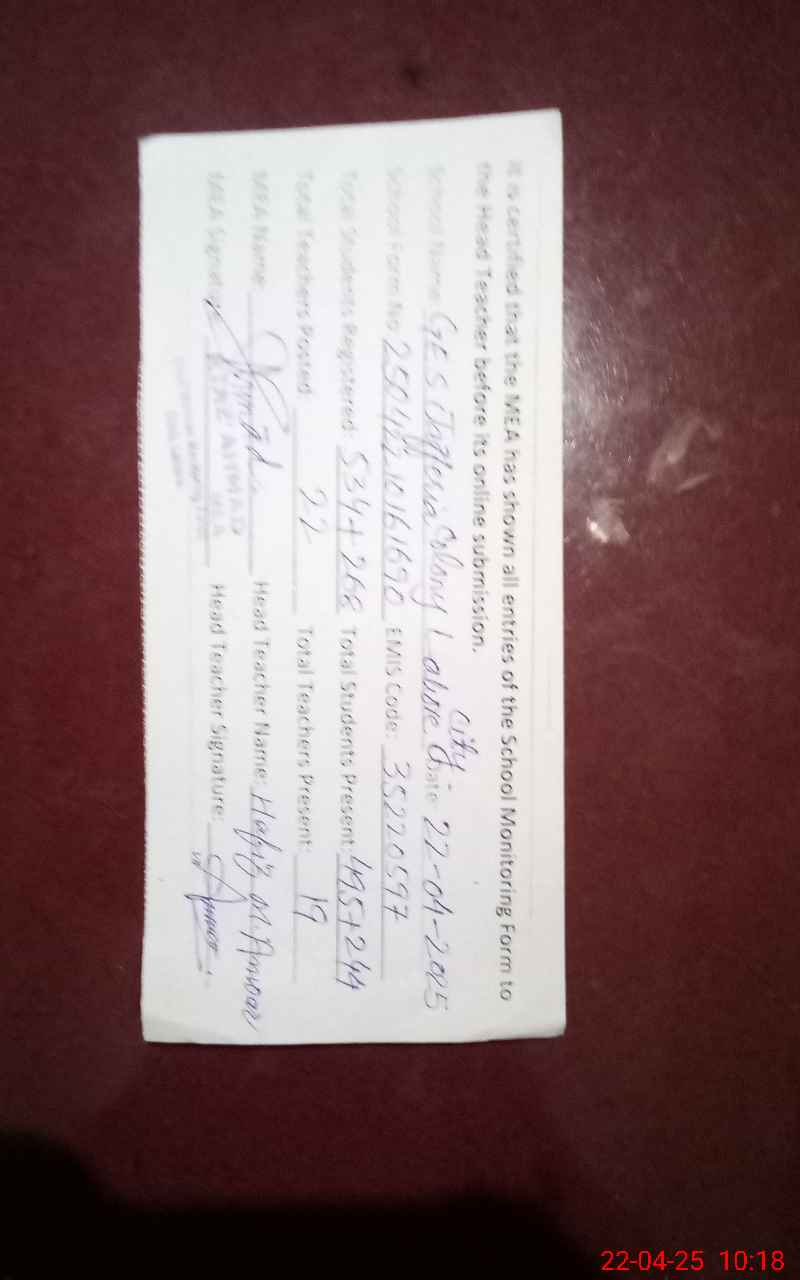 It is certified that the MEA has shown all entries of the School Monitoring Form to
the Head Teacher before its online submission.
School Name: GES Jafferia Colony Lahore City Date: 22-04-2025
School Form No: EMIS Code: 35220597
Total Students Registered: 534+268 Total Students Present: 495+244
Total Teachers Posted 22 Total Teachers Present: 19
MEA Name: Ahmad Head Teacher Name: Hafiz M. Anwar
MEA Signature: Head Teacher Signature:
AHMAD
MEA
22-04-25 10:18